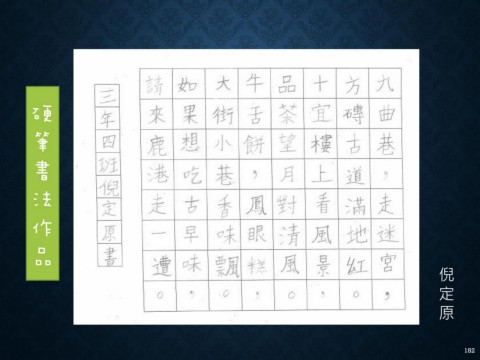 硬筆書法作品
九曲巷，走迷宮，
方磚古道滿地紅。
十宜樓上看風景，
品茶望月對清風。
牛舌餅，鳳眼糕，
大街小巷香味飄。
如果想吃古早味，
請來鹿港走一遭。
三年四班倪定原書
倪定原
182